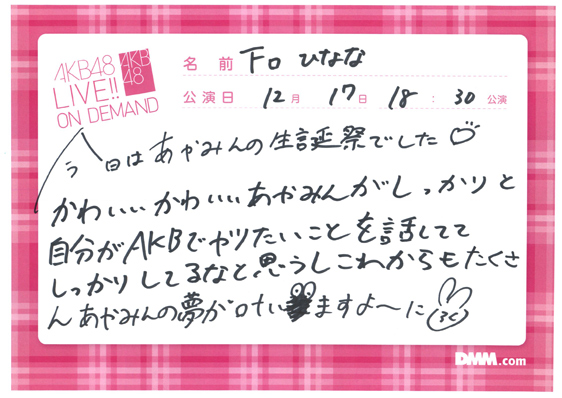 AKB48
LIVE!!
ON DEMAND
AKB
48
名前 下口 ひなな
公演日 12月 17日 18:30 公演
今日は あやみんの生誕祭でした
かわいいかわいいあやみんがしっかりと
自分がAKBでやりたいことを話してて
しっかりしてるなと思うしこれからもたくさ
んあやみんの夢が叶い ますよ〜に
DMM.com